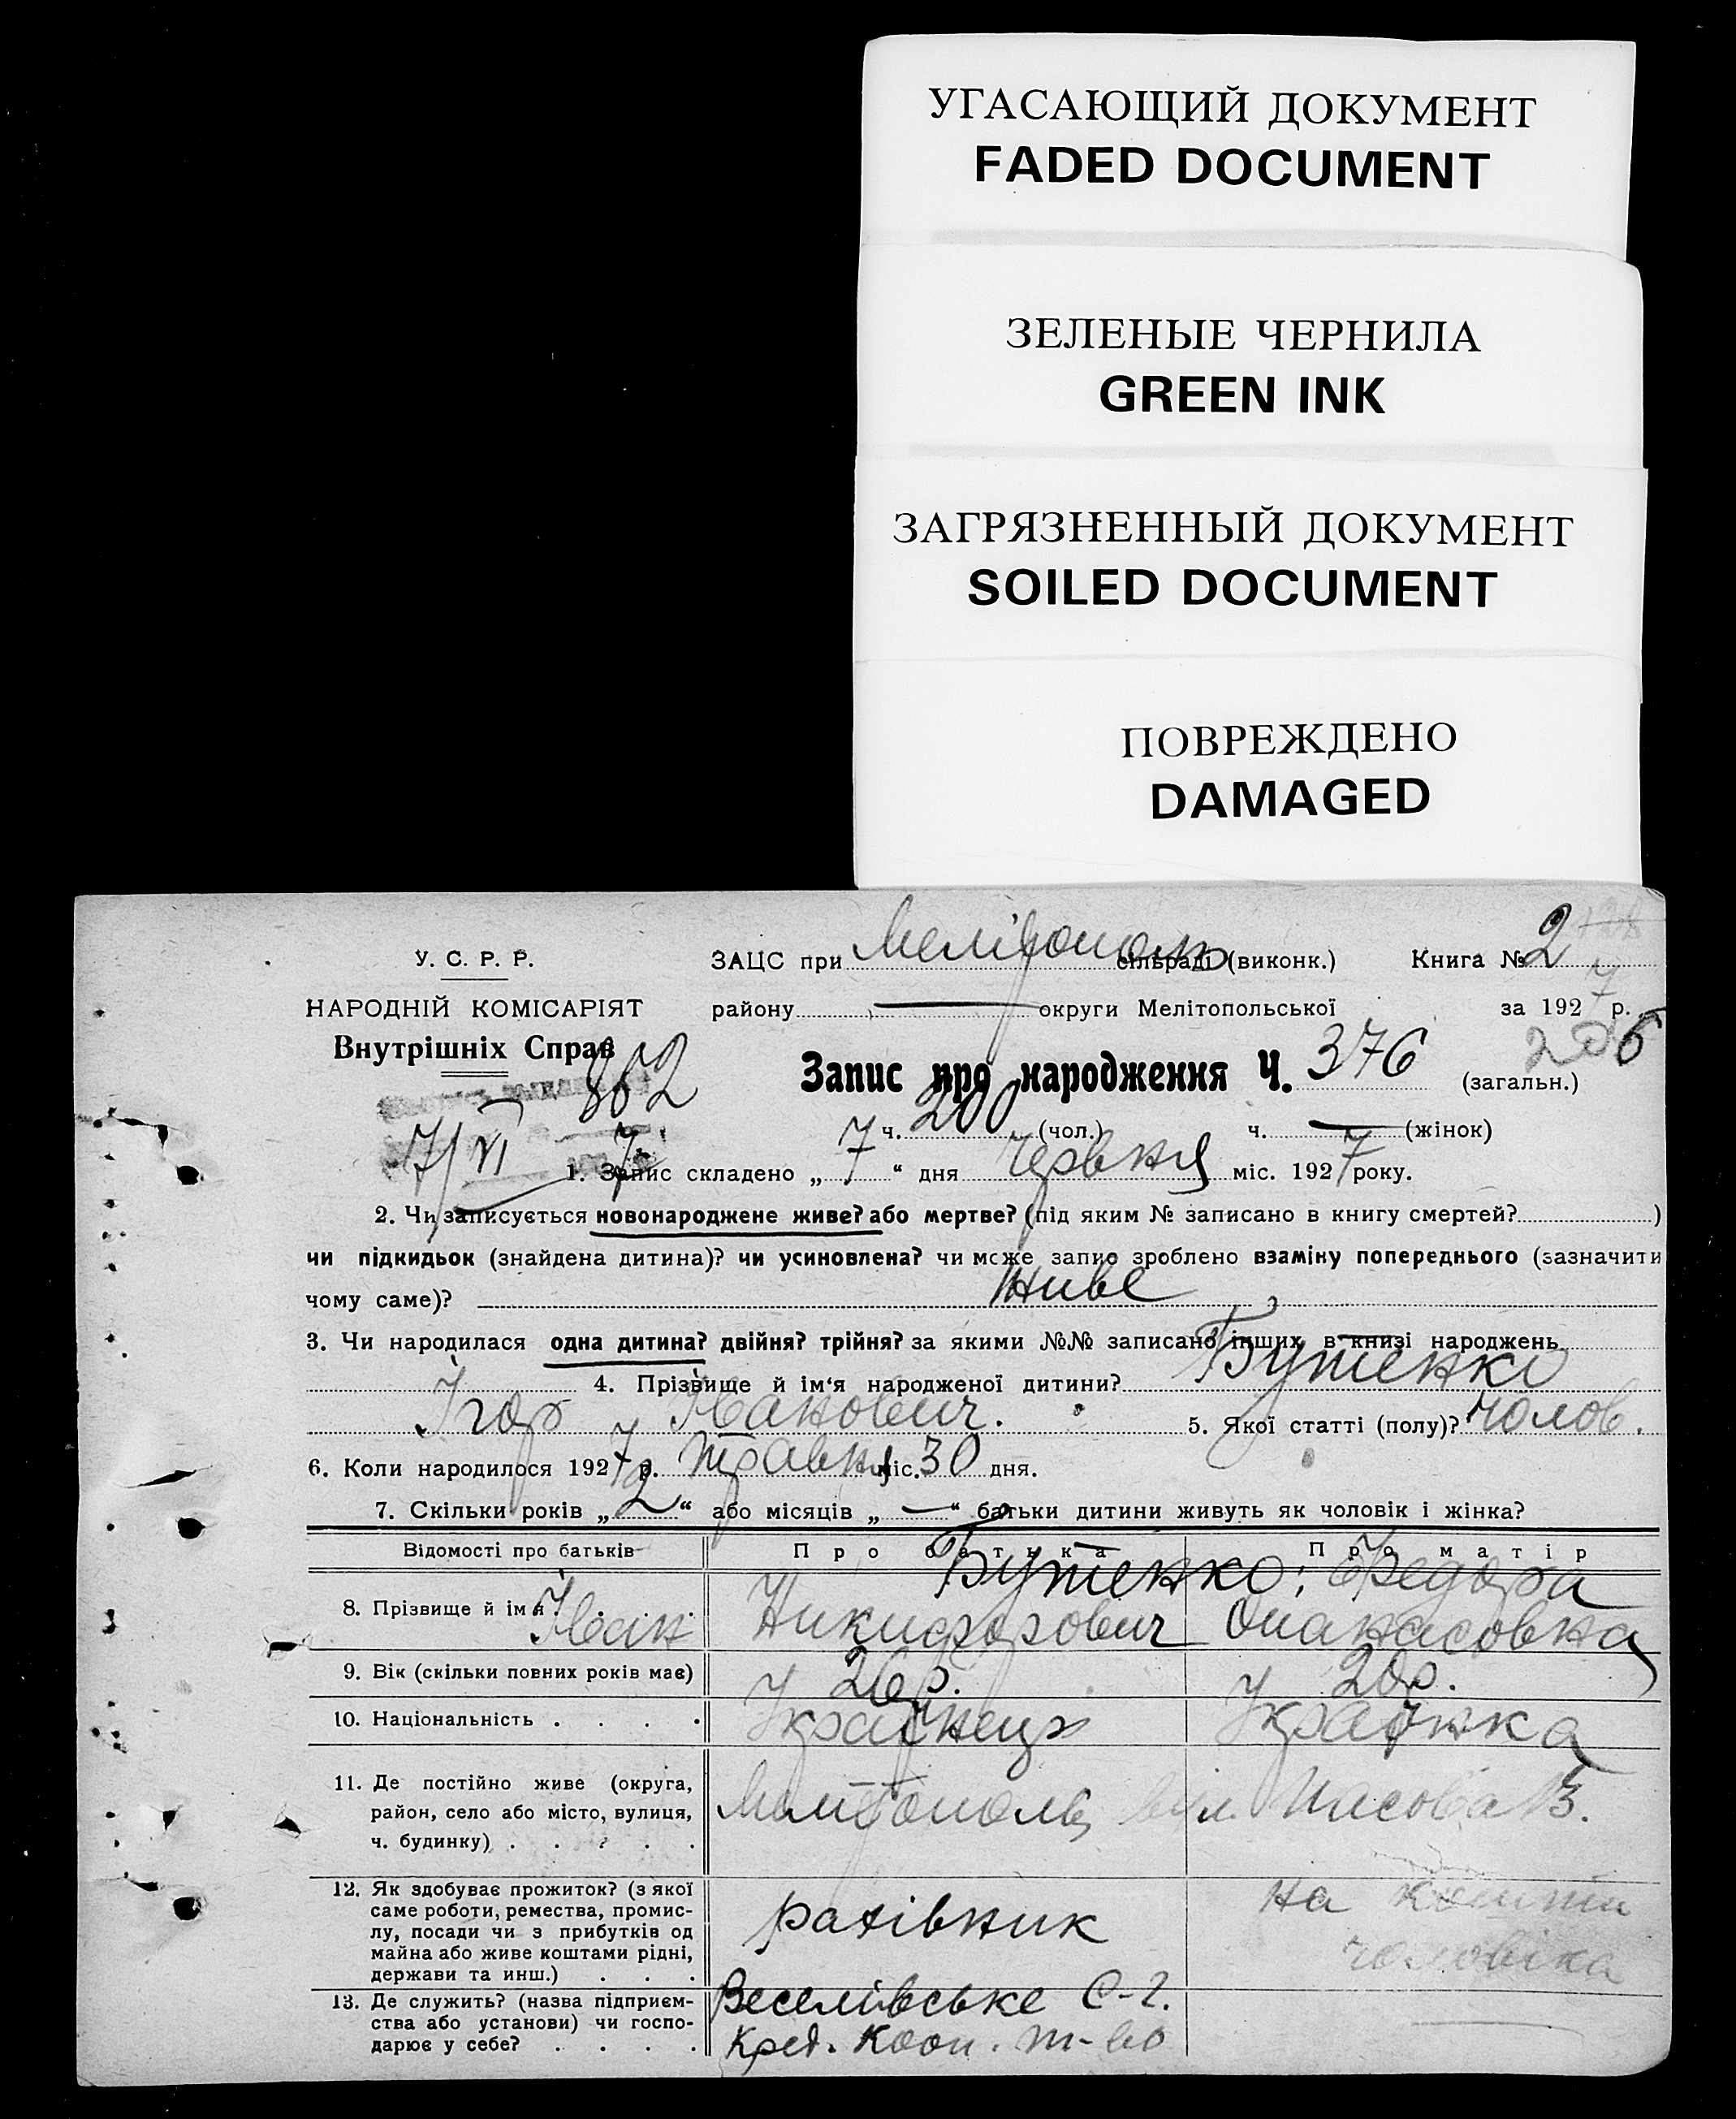 УГАСАЮЩИЙ ДОКУМЕНТ
FADED DOCUMENT
ЗЕЛЕНЫЕ ЧЕРНИЛА
GREEN INK
ЗАГРЯЗНЕННЫЙ ДОКУМЕНТ
SOILED DOCUMENT
ПОВРЕЖДЕНО
DAMAGED
У. С. Р. Р.
НАРОДНІЙ КОМІСАРІЯТ
Внутрішніх Справ
862
7/VI 7
ЗАЦС при Мелітополь сільраді (виконк.) Книга № 2
району — округи Мелітопольської за 1927 р.
206
Запис про народження Ч. 376 (загальн.)
ч. 200 (чол.) ч. — (жінок)
1. Запис складено „7“ дня Червня міс. 1927 року.
2. Чи записується новонароджене живе? або мертве? (під яким № записано в книгу смертей? )
чи підкидьок (знайдена дитина)? чи усиновлена? чи може запис зроблено взаміну попереднього (зазначити
чому саме)? живе
3. Чи народилася одна дитина? двійня? трійня? за якими №№ записано інших в книзі народжень
4. Прізвище й ім‘я народженої дитини? Бутенко
Ігор Іванович. 5. Якої статті (полу)? чолов.
6. Коли народилося 1927 р. травня міс. 30 дня.
7. Скільки років „2“ або місяців „—“ батьки дитини живуть як чоловік і жінка?
Відомості про батьків Про батька Про матір
Бутенко; Федора
8. Прізвище й ім‘я Іван Никифорович Опанасовна
9. Вік (скільки повних років має) 26р. 20р.
10. Національність . . . . Українець Українка
11. Де постійно живе (округа,
район, село або місто, вулиця, Мелітополь, вул. 13.
ч. будинку) . . . . .
12. Як здобуває прожиток? (з якої
саме роботи, ремества, промис-
лу, посади чи з прибутків од
майна або живе коштами рідні,
держави та инш.) . . .
рахівник на кошти
чоловіка
13. Де служить? (назва підприєм-
ства або установи) чи госпо-
дарює у себе? . . . .
Веселівське С-г.
Кред. Кооп. т-во